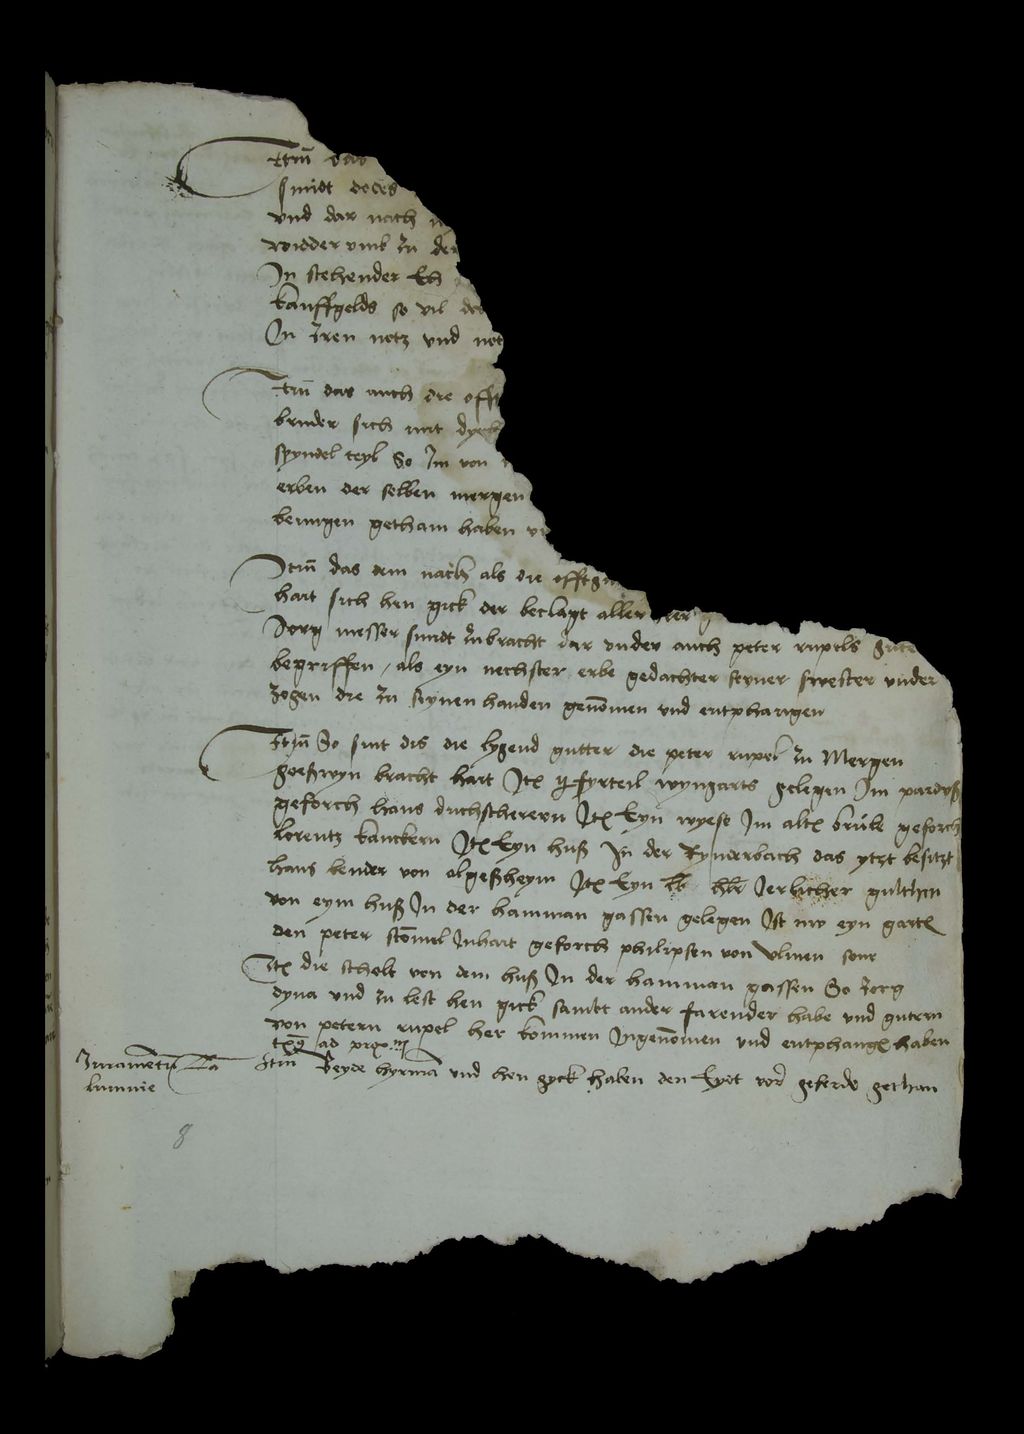 Item das
smidt doces
vnd dar nach
widder vmb zu der
In stehender Eh
kauffgelds so vil des
In Iren notz vnd not
Item das auch die offt
bruder sich mit dyech
spyndel teyl So Im von
erben der selben mergen
bringen gethain haben
Item das dem nach als die offtg
hart sich hen gick der beclagt aller
Jorg messer smidt zubracht dar vnder auch peter rupels gute
begriffen, als eyn nechster erbe gedachter seyner swester vnder
zogen die zu synen handen genomen vnd entphangen
Item So sint dis die lygend gutter die peter rupel zu Mergen
goeßwyn bracht hart Itē fyrteil wyngarts gelegen Im pardyß
geforch hans duchscherern Itē Eyn wyese Im altē brule geforch
Lorentz kanckern Itē Eyn huß In der Rynderbach das ytzt besitzt
hans bender von olgeßheym Itē Eyn lb hlr Jerlicher gulthen
von eym huß In der hamman gassen gelegen Ist nw eyn gartē
den peter stōmel Inhart geforch philipsen von vlmen sone
Itē die scholt von dem huß In der hamman gassen So Jorg
dyna vnd zu lest hen gick sampt ander farender habe vnd guttern
von petern rupel her kommen Ingenōmen vnd entphangē haben
ad prox
Juramentū Ca Item Beyde hyrmā vnd hen gyck haben den Eydt vor geferde gethan
lumnie
8